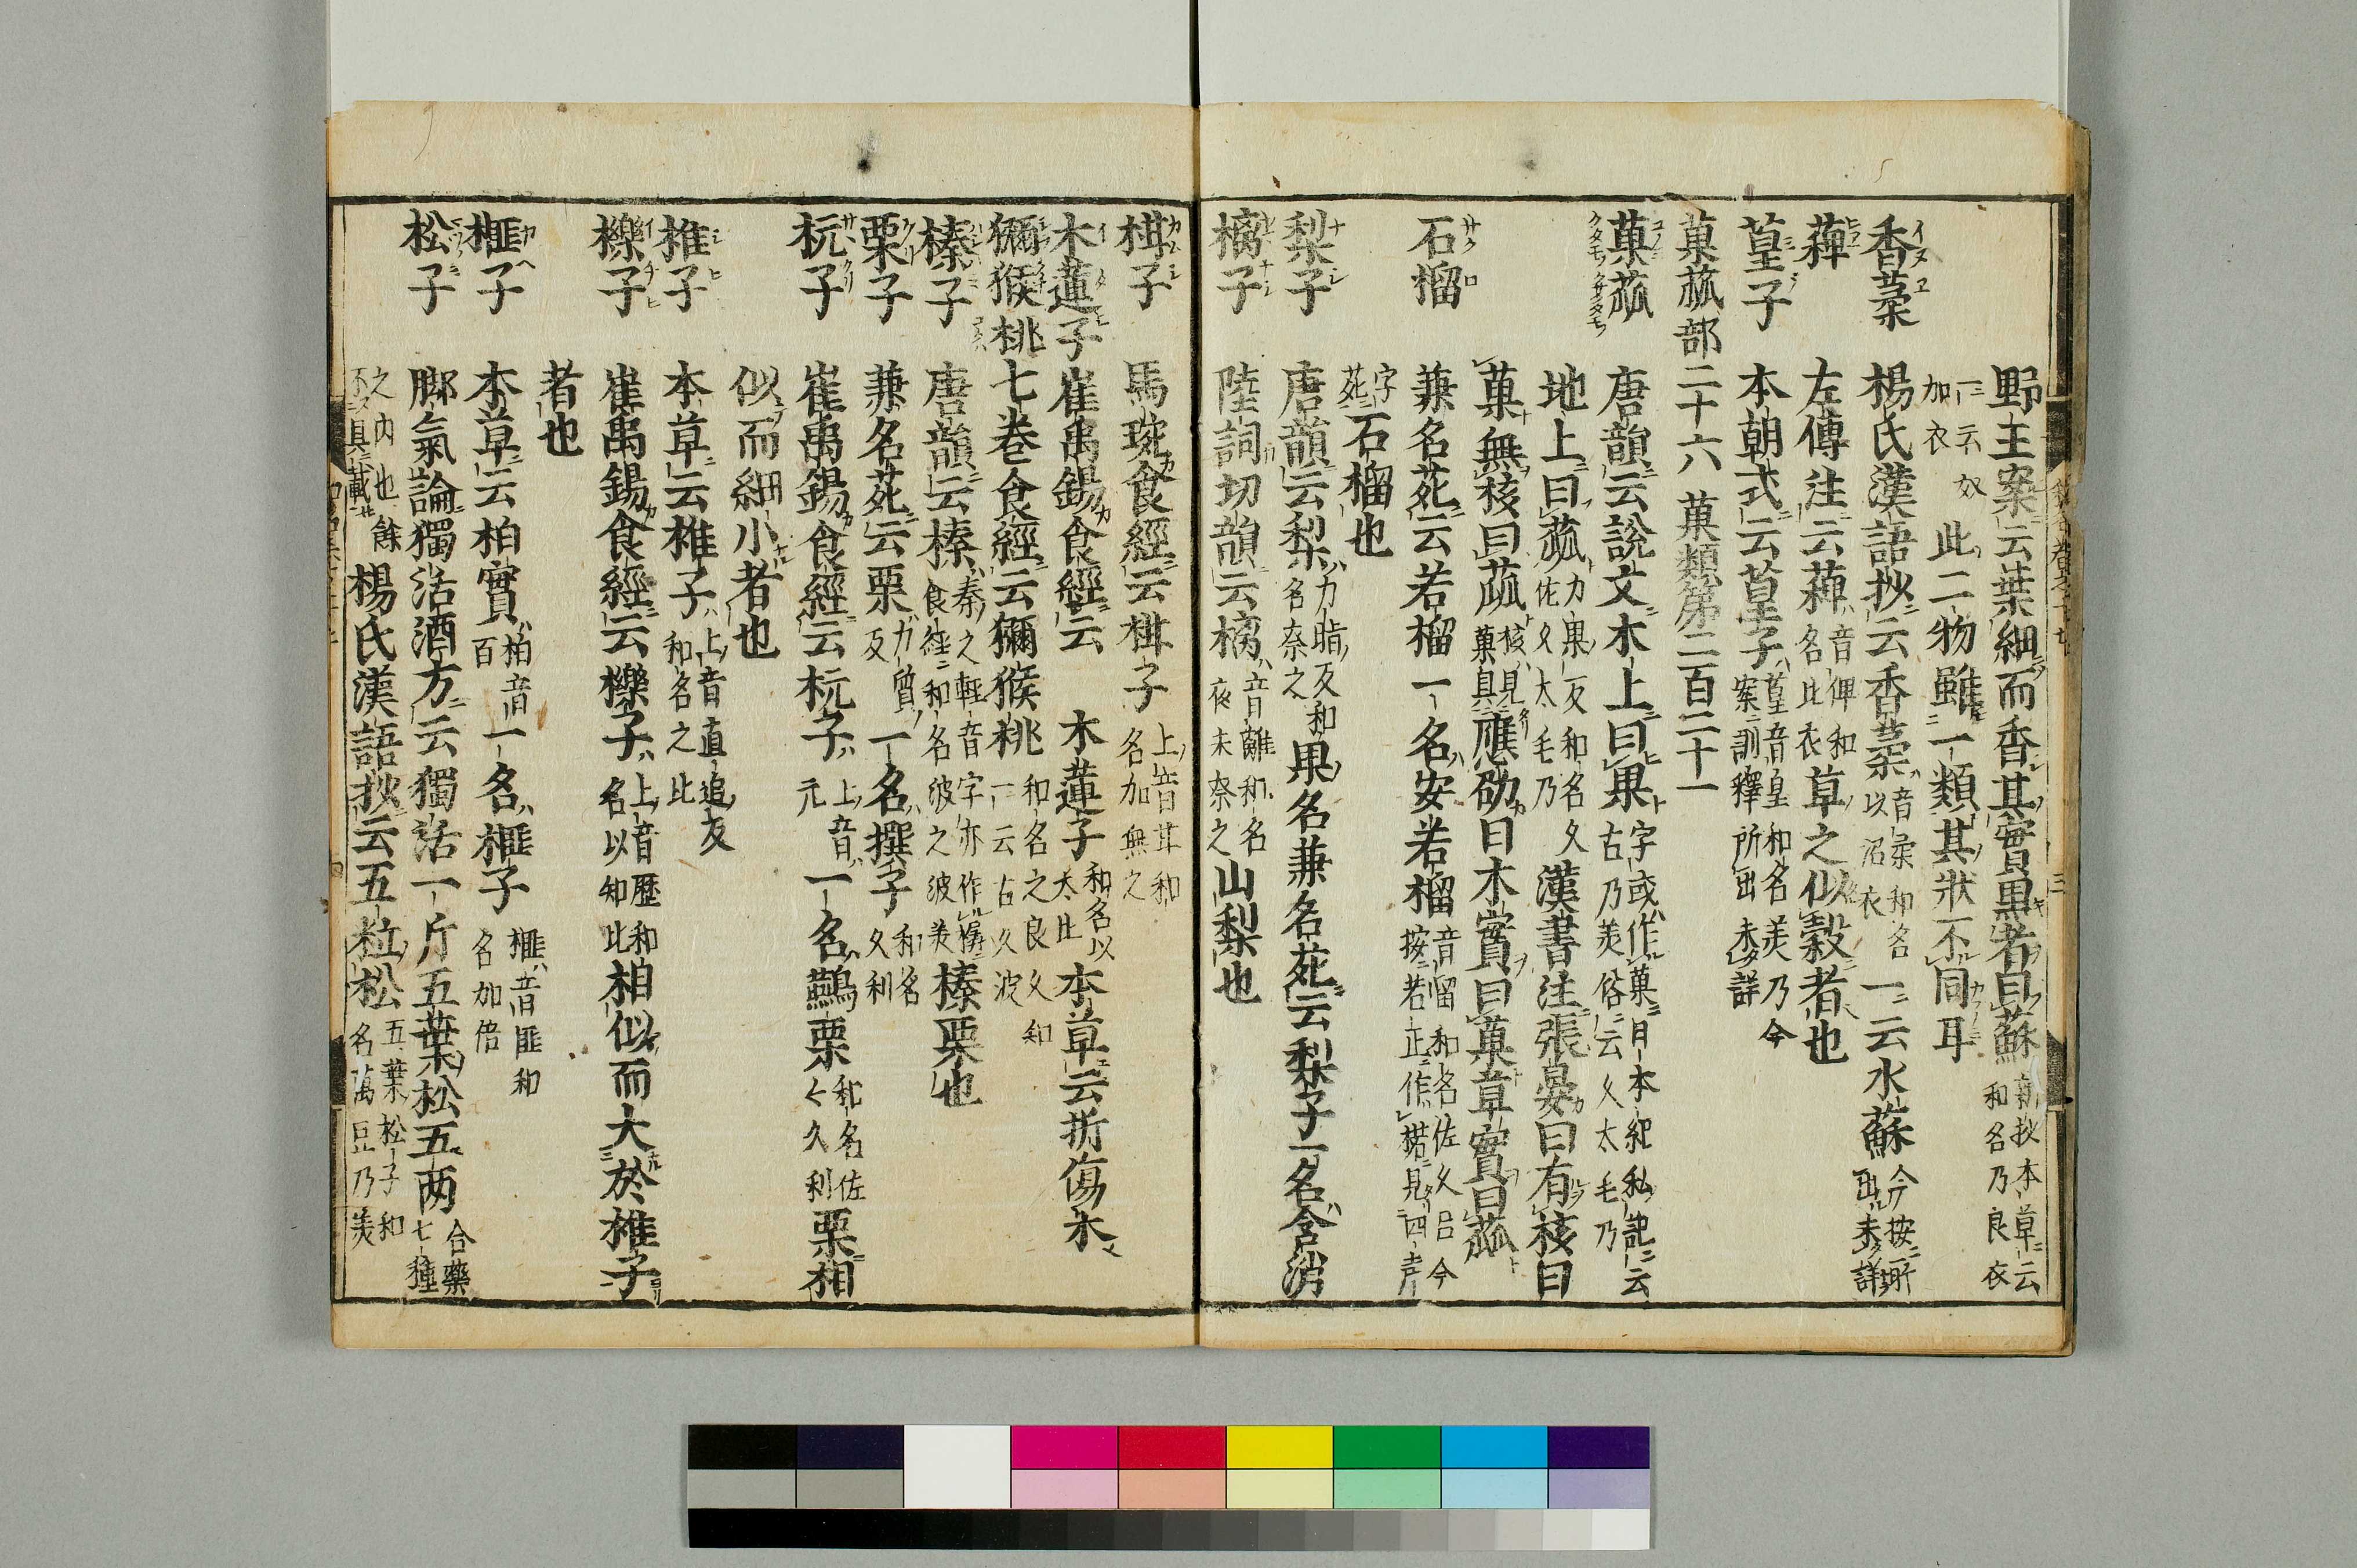 野王案云葉細而香其實黒者曰蘇 新抄本草云和名乃良衣
一云奴加衣 此二物雖一類其狀不同耳
香葇 楊氏漢語抄云香葇 音柔和名以沼衣 一云水蘇 今按所出未詳
稗 左傳注云稗 音俾和名比衣 草之似穀者也
葟子 本朝式云葟子 葟音皇和名美乃今案訓釋所出未詳
菓蓏部二十六 菓類第二百二十一
菓蓏 唐韻云說文木上曰果 字或作菓日本紀私記云古乃美俗云久太毛乃
地上曰蓏 力果反和名久佐久太毛乃 漢書注張晏曰有核曰
菓無核曰蓏 核見菓具 應劭曰木實曰菓草實曰蓏
石榴 兼名苑云若榴一名安若榴 音留和名佐久呂今按若正作楉見四声
字苑 石榴也
梨子 唐韻云梨 力脂反和名奈之 果名兼名苑云梨子一名含消
樆子 陸詞切韻云樆 音離和名夜末奈之 山梨也
椹子 馬琬食經云椹子 上音甚和名加無之
木蓮子 崔禹錫食經云木蓮子 和名以太比 本草云折傷木
獼猴桃 七巻食經云獼猴桃 和名之良久知一云古久波
榛子 唐韻云榛 秦之輕音字亦作樼食經和名波之波美 榛栗也
栗子 兼名苑云栗 力質反 一名撰子 和名久利
杬子 崔禹錫食經云杬子 上音元 一名鷰栗 和名佐々久利 栗相
似而細小者也
椎子 本草云椎子 上音直追反和名之比
櫟子 崔禹錫食經云櫟子 上音歷和名以知比 相似而大於椎子
者也
榧子 本草云柏實 柏音百 一名榧子 榧音匪和名加倍
松子 脚氣論獨活酒方云獨活一斤五葉松五两 合藥七種
之内也餘不具載 楊氏漢語抄云五粒松 五葉松子和名萬豆乃美